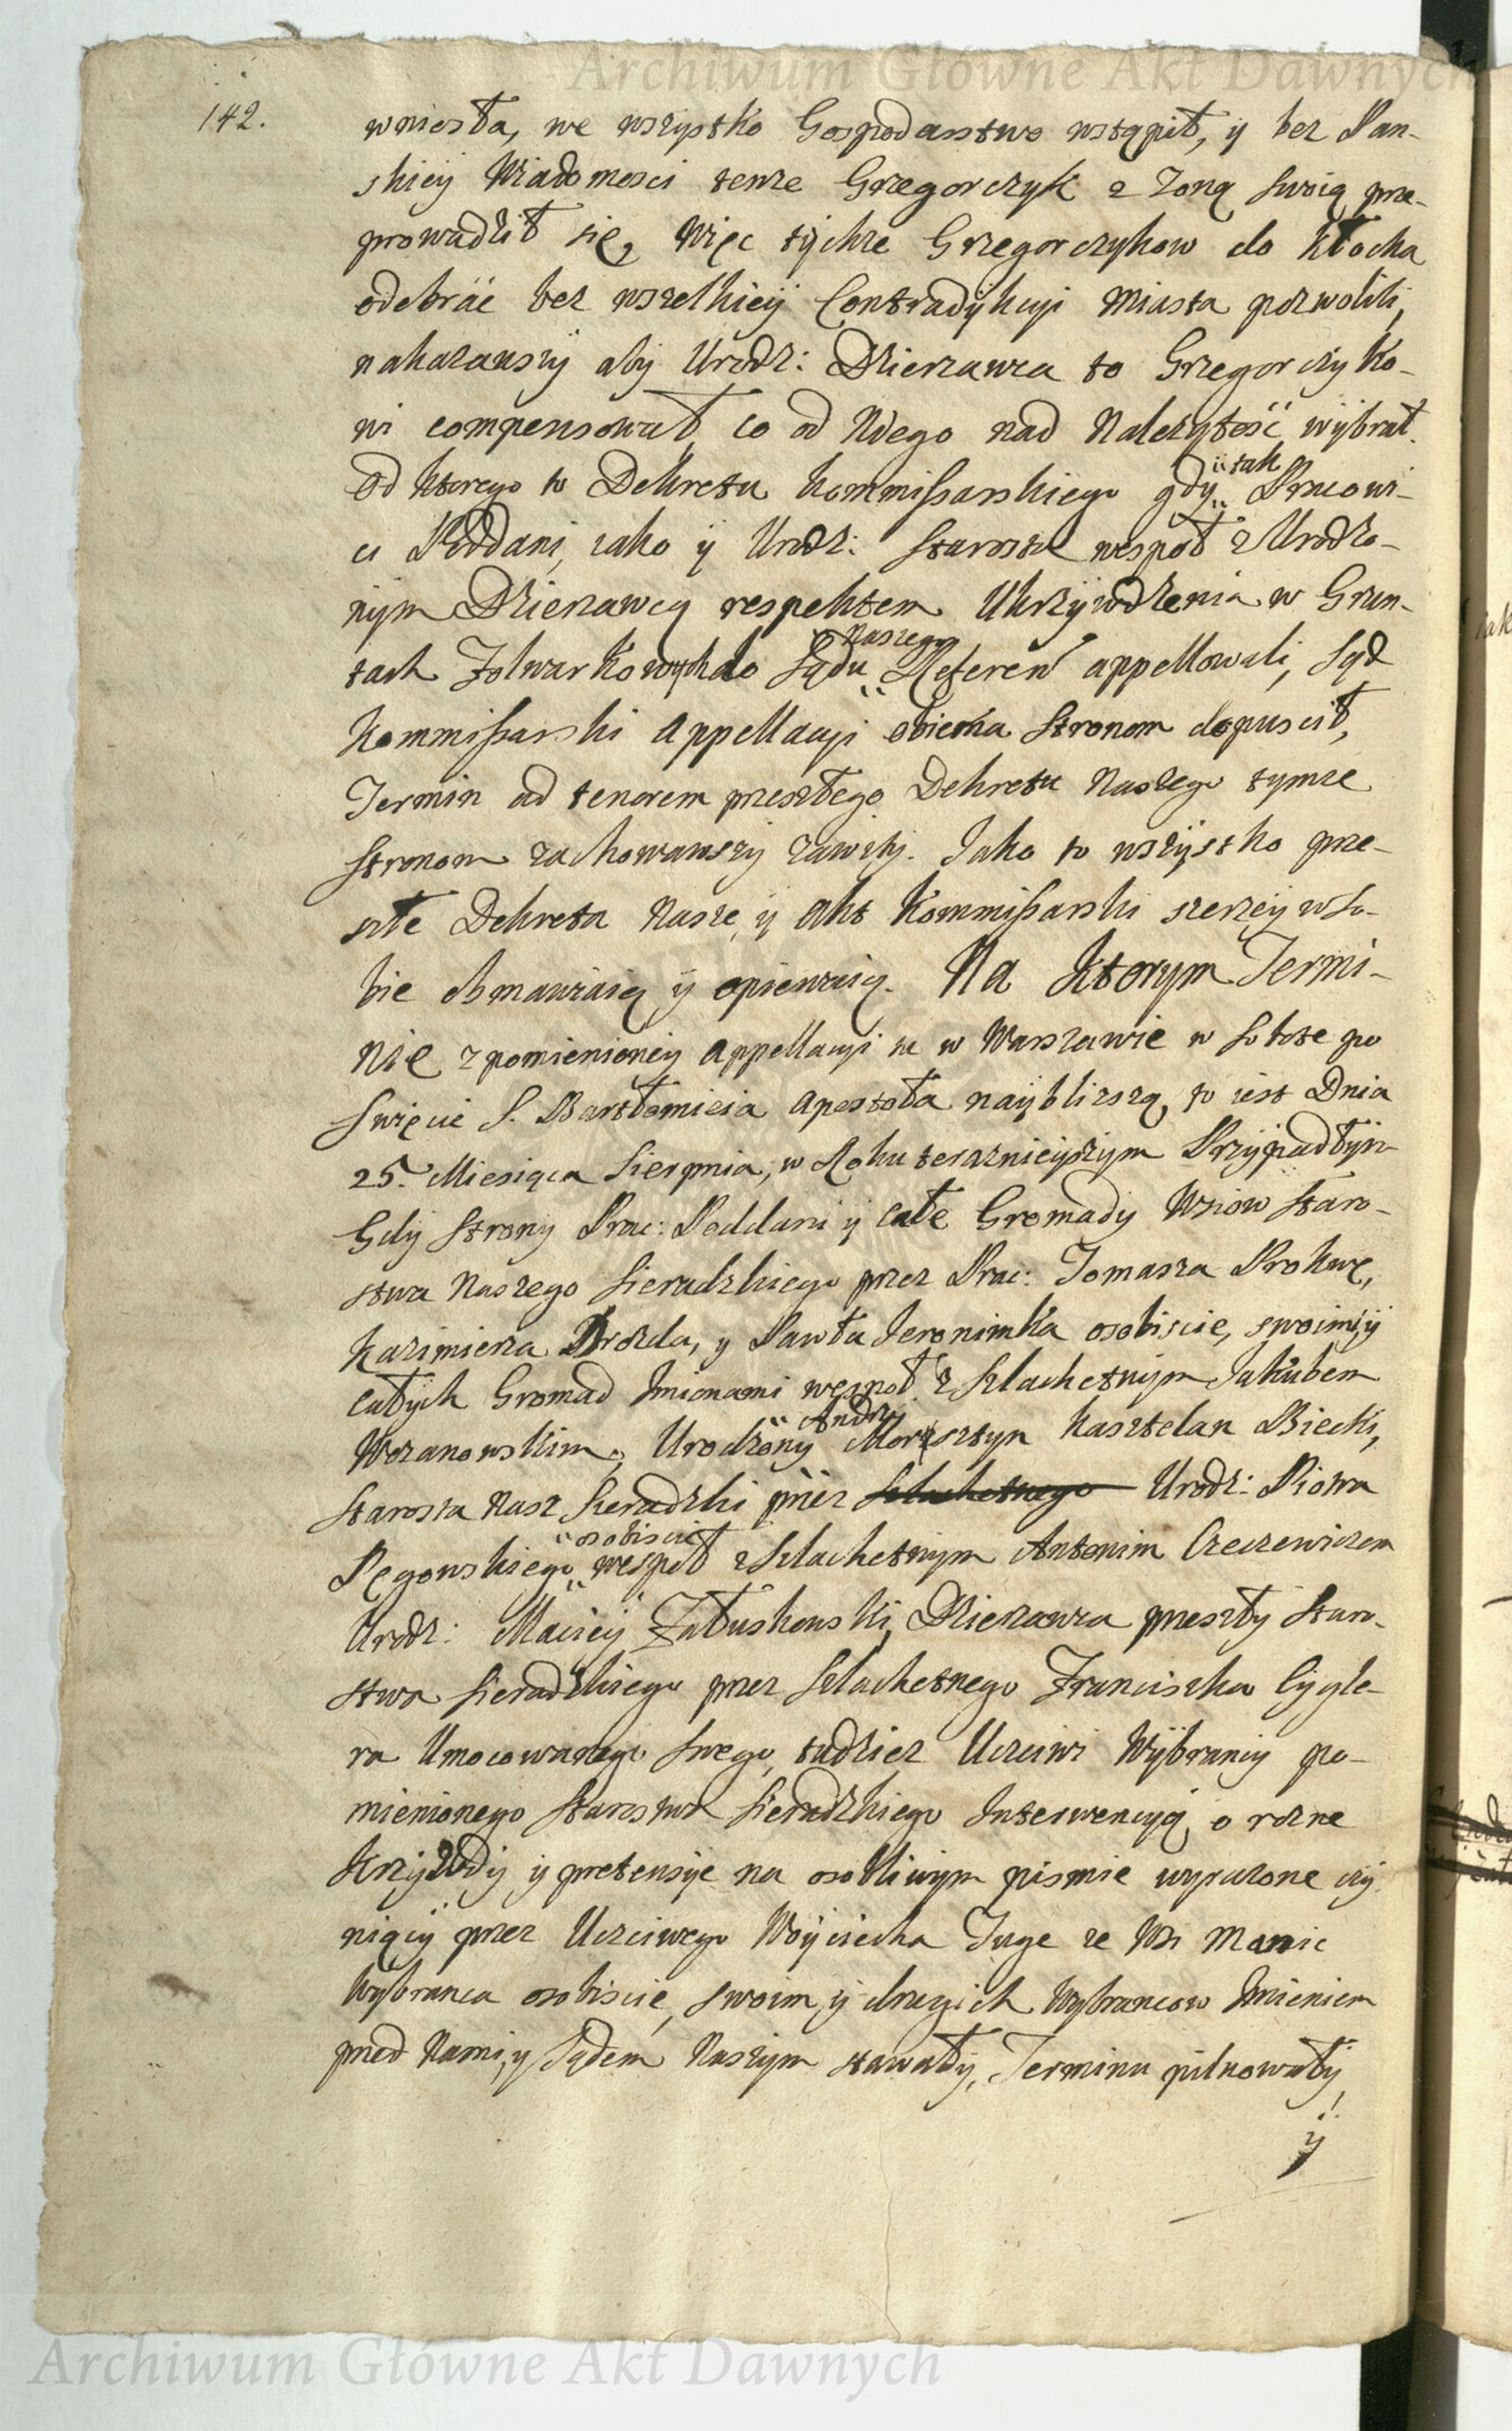 Archiwum Główne Akt Dawnych
142.
wniosła, we wszystko Gospodarstwo wstąpił, y bez Pan-
skiey Wiadomosci tenze Grzegorczyk z Zoną swoią prze-
prowadził się, Więc tychze Grzegorczykow do Kłocka
odebrać bez wszelkiey Contradykcyi Miasta pozwolili,
nakazawszy aby Urodz: Dzierzawca to Grzegorczyko-
wi compensował, co od Niego nad Nalezytość wybrał.
Od ktorego to Dekretu Kommissarskiego gdy tak Pracowi-
ci Poddani, iako y Urodz: Starosta wespoł z Urodzo-
nym Dzierzawcą respektem Ukrzywdzenia w Grun-
tach Folwarkowych do Sądu Naszego Referen appellowali, Sąd
Kommissarski Appellacyi obiema Stronom dopuscił,
Termin ad tenorem przeszłego Dekretu Naszego tymze
Stronom zachowawszy zawity. Jako to wszystko prze-
szłe Dekreta Nasze, y Akt Kommissarski szerzey w So-
bie obmawiaią y opiewaią. Na ktorym Termi-
nie z pomienioney Appellacyi tu w Warszawie w Sobote po
Swięcie S. Bartłomieia Apostoła nayblizszą, to iest Dnia
25. Miesiąca Sierpnia, w Roku teraznieyszym Przypadłym
Gdy Strony Prac: Poddani y całe Gromady Wsiow Staro-
stwa Naszego Sieradzkiego przez Prac: Tomasza Prokwę,
Kazimierza Drozda, y Pawła Jeronimka osobiscie, swoim, y
całych Gromad Imionami wespoł z Szlachetnym Jakubem
Wozanowskim, Urodzony Andrz. Morsztyn Kasztelan Biecki,
Starosta Nasz Sieradzki przez Szlachetnego Urodz: Piotra
Pęgowskiego osobiscie wespoł z Szlachetnym Antonim Czeczewiczem
Urodz: Maciey Załuskowski, Dzierzawca przeszły Staro-
stwa Sieradzkiego przez Szlachetnego Franciszka Cygle-
ra Umocowanego swego, tudziez Uczciwi Wybrancy po-
mienionego Starostwa Sieradzkiego Interwencyą o rozne
Krzywdy y pretensye na osobliwym pismie wyrazone czy-
niący przez Uczciwego Woyciecha Juge ze Wsi Manic
Wybranca osobiscie, swoim y drugich Wybrancow Imieniem
przed Nami, y Sądem Naszym stawały, Terminu pilnowały,
y
Archiwum Główne Akt Dawnych